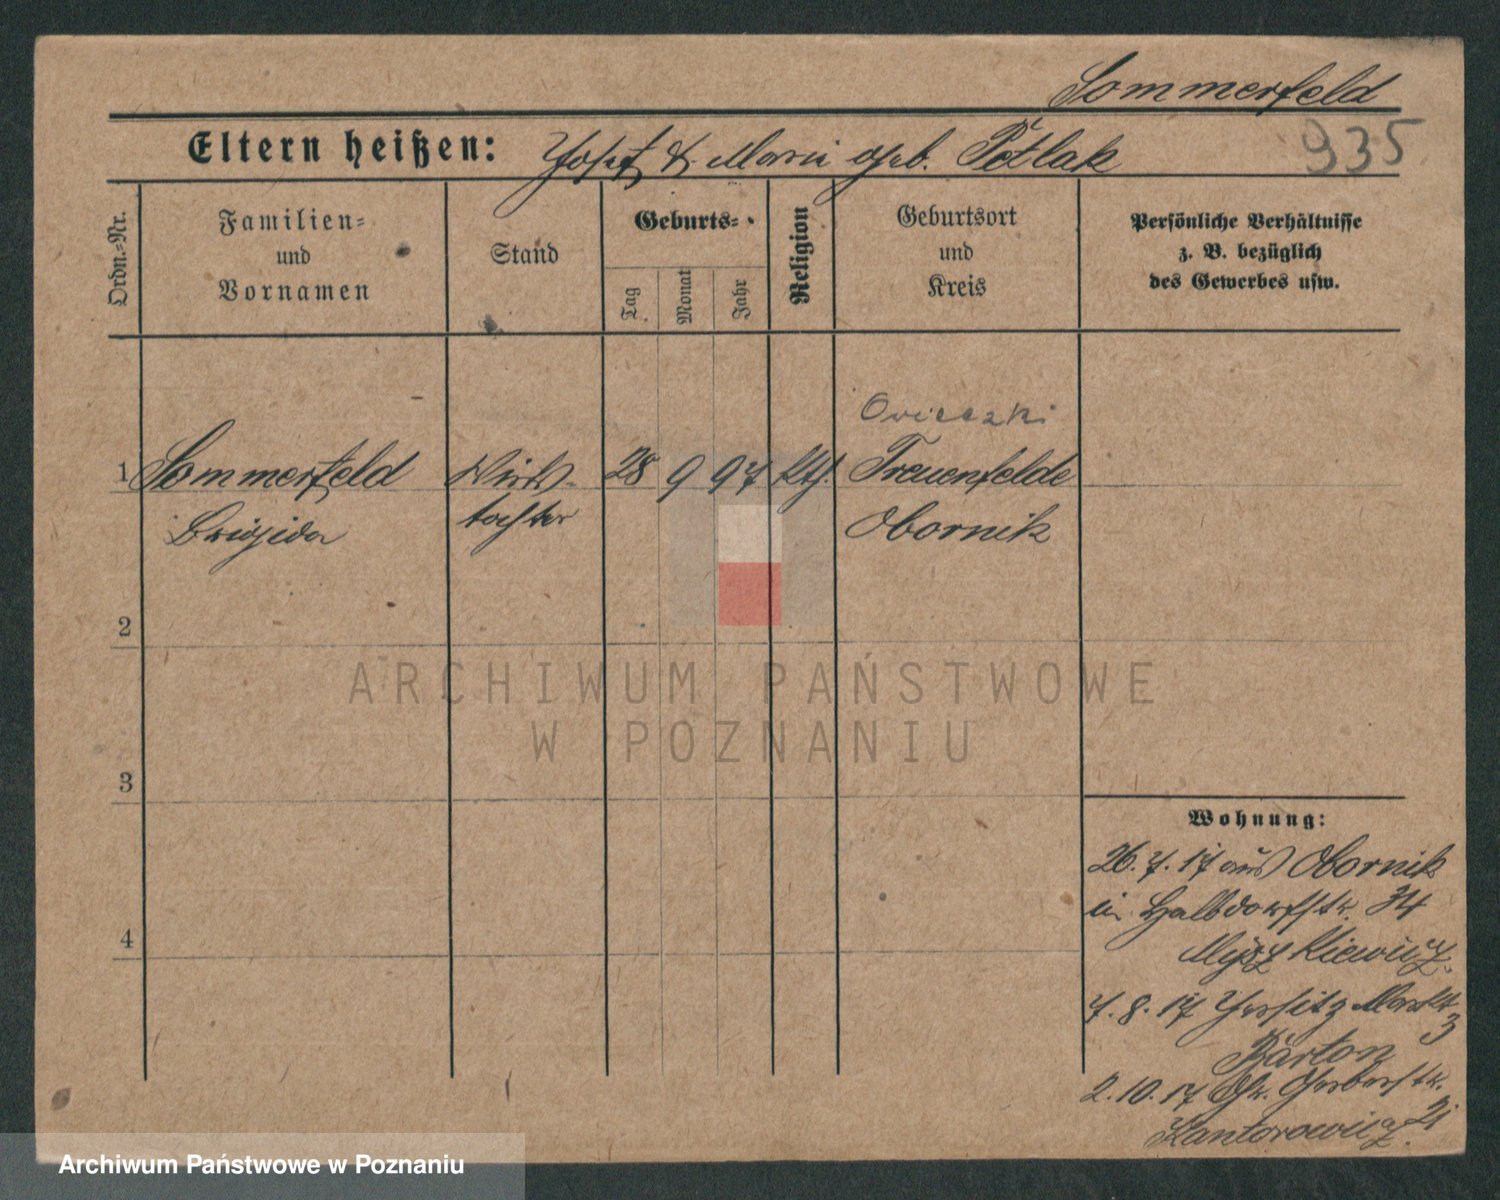 Sommerfeld
935
Eltern heißen: Josef & Marie geb. Petlak
Ordn.-Nr.
Familien-
und
Vornamen
Stand
Geburts-
Tag
Monat
Jahr
Religion
Geburtsort
und
Kreis
Persönliche Verhältnisse
z. B. bezüglich
des Gewerbes usw.
Owieczki
1 Sommerfeld Wirts- 28 9 97 kth. Treuenfelde
Brigida tochter Obornik
2
3
4
Wohnung:
26.7.17 aus Obornik
in Halbdorfstr. 34
Myszkiewicz.
7.8.17 Jersitz Markt 3
Barton
2.10.17 Gr. Gerberstr. 21
Kantorowicz.
ARCHIWUM PAŃSTWOWE
W POZNANIU
Archiwum Państwowe w Poznaniu